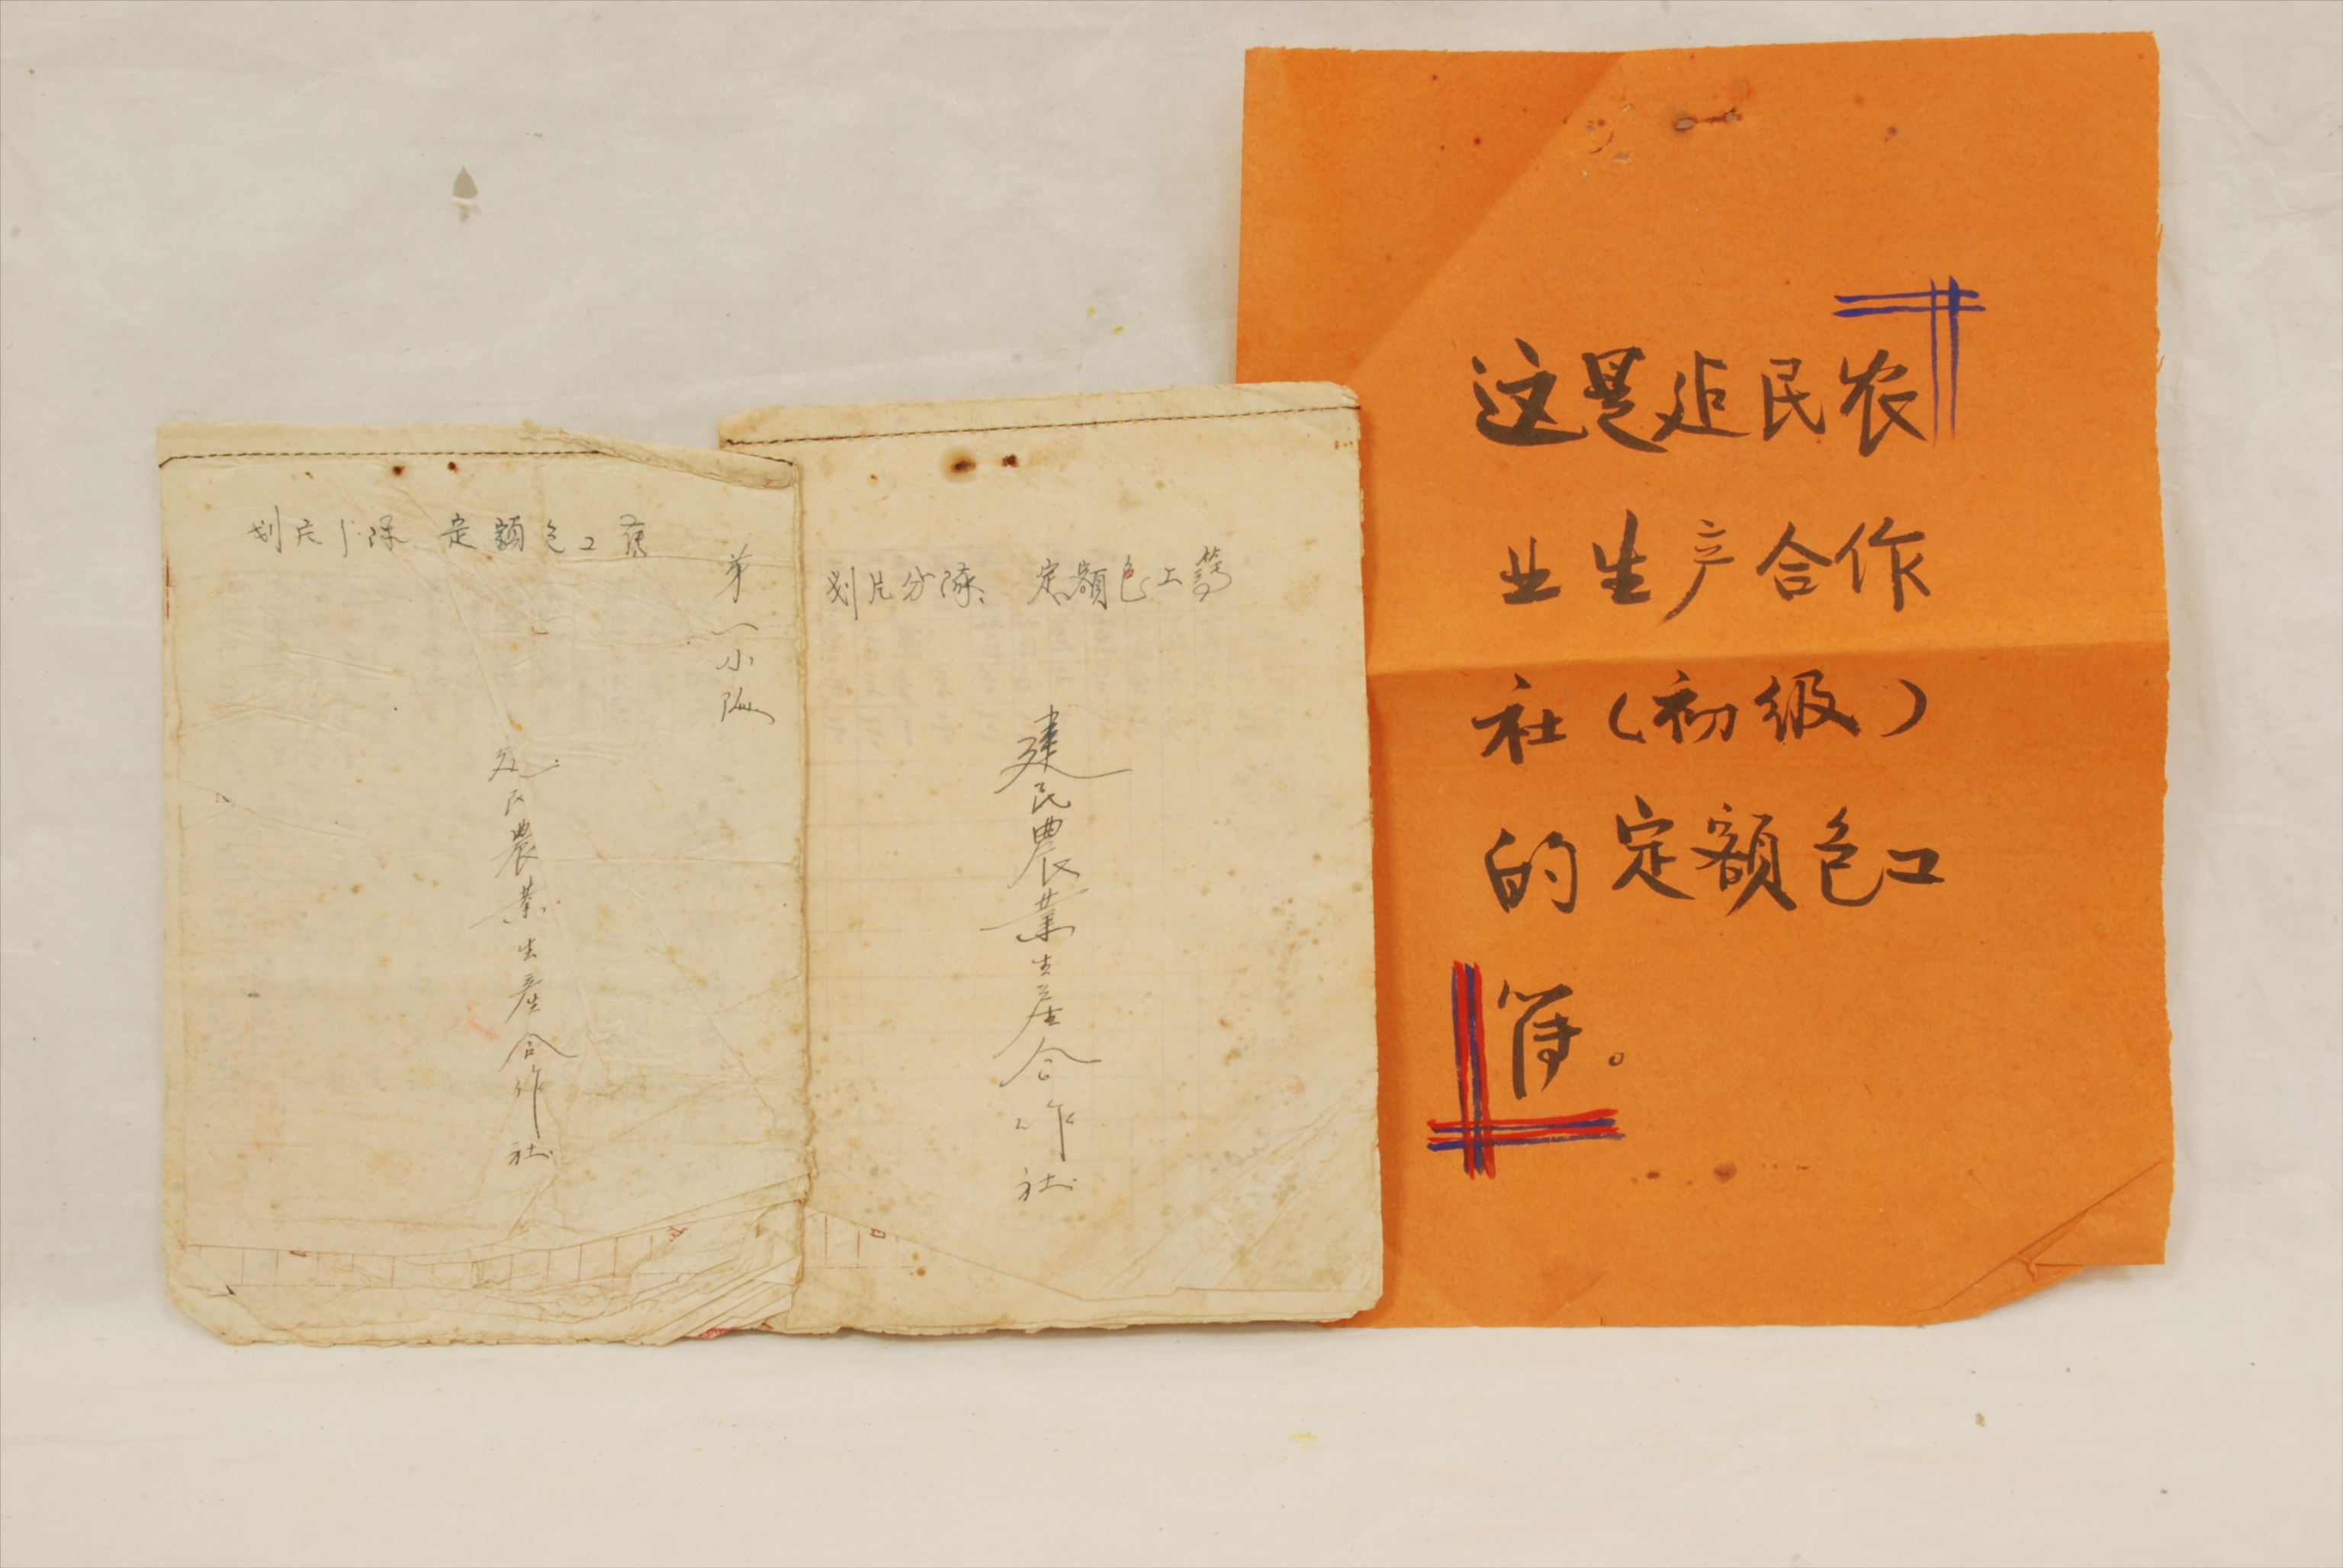 划片分隊 定額包工簿
第一小队
建民農業生產合作社
划片分隊、定額包工簿
建民農業生產合作社
这是建民农
业生产合作
社(初级)
的定额包工
簿。